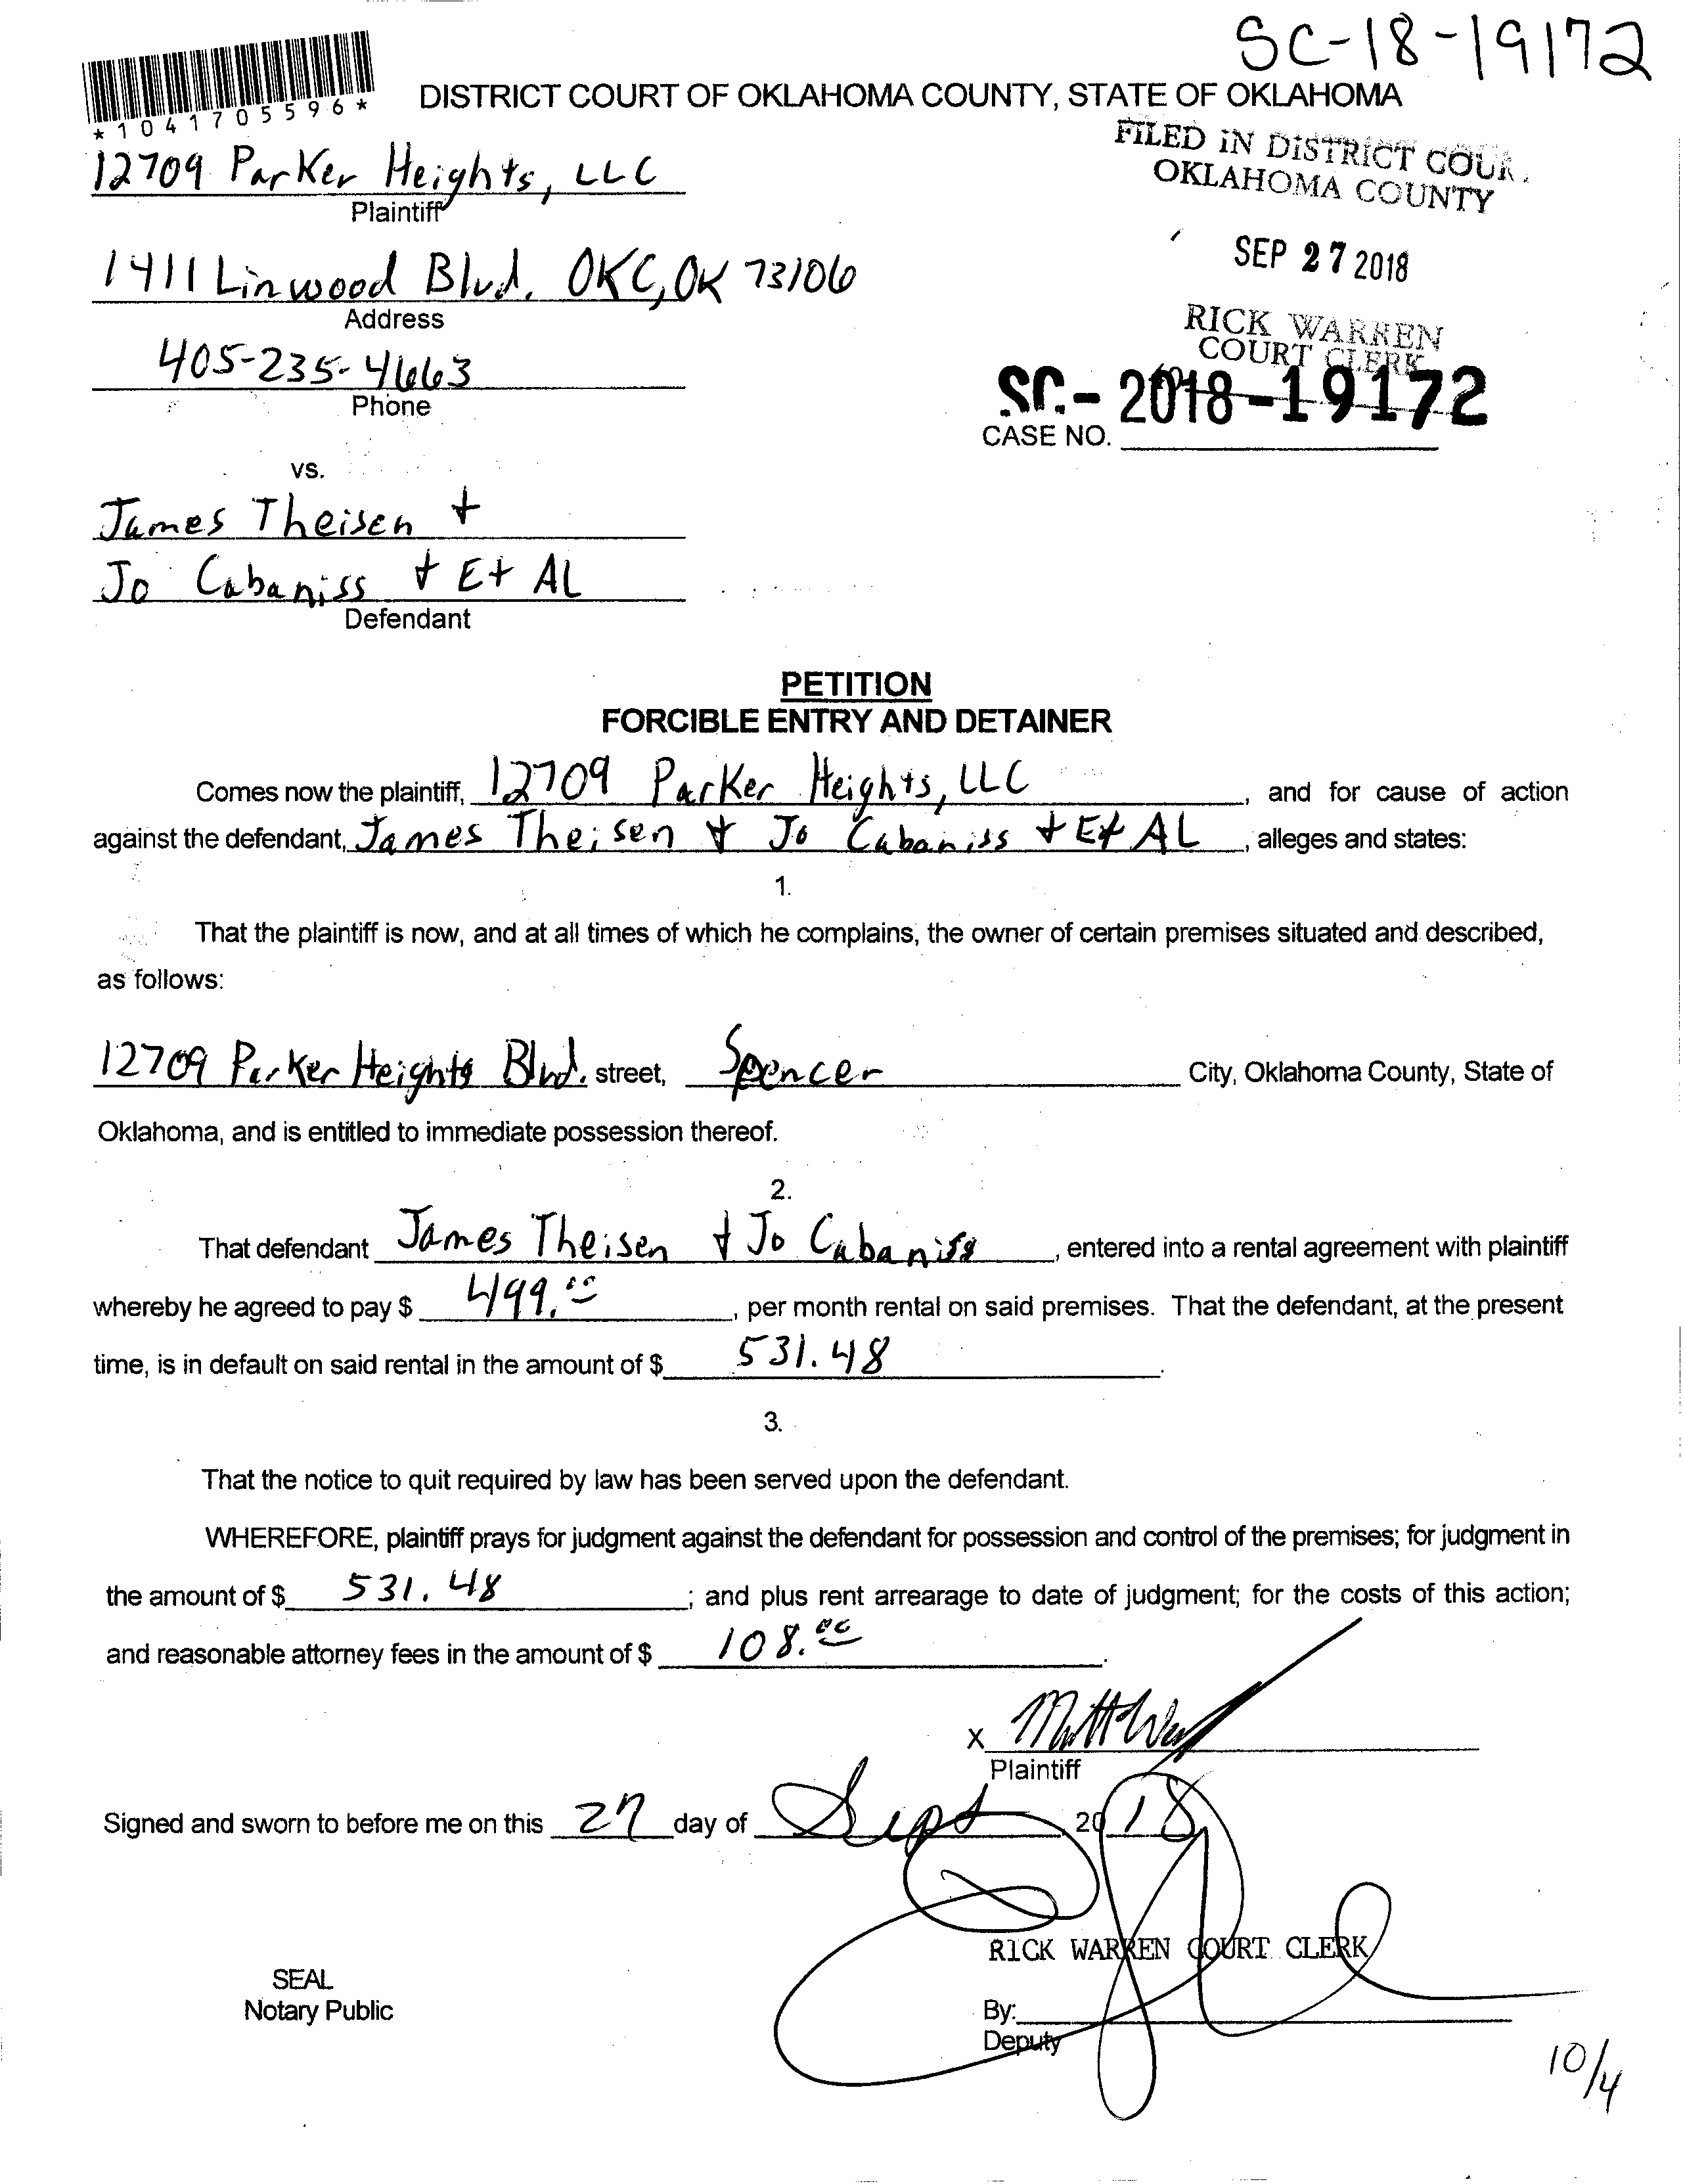 SC-18-19172
*1041705596*
DISTRICT COURT OF OKLAHOMA COUNTY, STATE OF OKLAHOMA
FILED IN DISTRICT COUR
OKLAHOMA COUNTY
12709 Parker Heights, LLC
Plaintiff
SEP 27 2018
1411 Linwood Blvd. OKC, OK 73106
Address
RICK WARREN
COURT CLERK
405-235-4663
Phone
SC-2018-19172
CASE NO.
vs.
James Theisen +
Jo Cabaniss + Et AL
Defendant
PETITION
FORCIBLE ENTRY AND DETAINER
Comes now the plaintiff, 12709 Parker Heights, LLC, and for cause of action
against the defendant, James Theisen + Jo Cabaniss + Et AL, alleges and states:
1.
That the plaintiff is now, and at all times of which he complains, the owner of certain premises situated and described,
as follows:
12709 Parker Heights Blvd. street, Spencer City, Oklahoma County, State of
Oklahoma, and is entitled to immediate possession thereof.
2.
That defendant James Theisen + Jo Cabaniss, entered into a rental agreement with plaintiff
whereby he agreed to pay $ 499.00, per month rental on said premises. That the defendant, at the present
time, is in default on said rental in the amount of $ 531.48.
3.
That the notice to quit required by law has been served upon the defendant.
WHEREFORE, plaintiff prays for judgment against the defendant for possession and control of the premises; for judgment in
the amount of $ 531.48; and plus rent arrearage to date of judgment; for the costs of this action;
and reasonable attorney fees in the amount of $ 108.00.
X
Plaintiff
Signed and sworn to before me on this 27 day of Sept, 2018
RICK WARREN COURT CLERK
SEAL
Notary Public
By:
Deputy
10/4